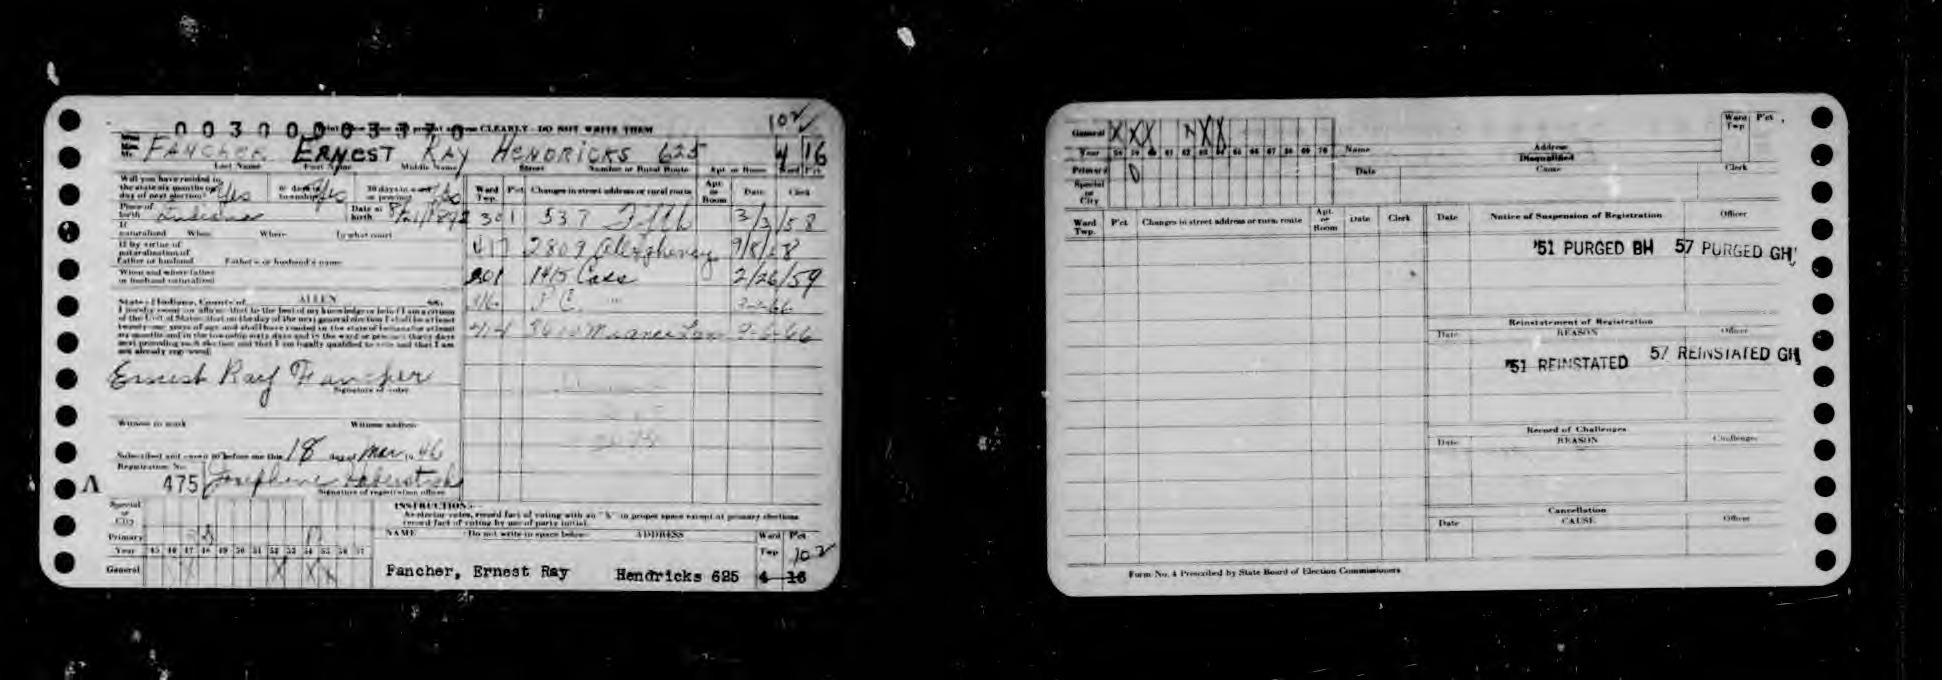 0030000 3370
Print your name and present address CLEARLY - DO NOT WRITE THEM
10 2
FANCHER ERNEST RAY HENDRICKS 625 4 16
Last Name First Name Middle Name Street Number or Rural Route Apt. or Room Ward Pct.
Will you have resided in the state six months on day of next election? Yes
60 days in township Yes
30 days in ward or precinct Yes
Place of birth Indiana
Date of birth
If naturalized When Where In what court
If by virtue of naturalization of Father or husband Father's or husband's name
When and where father or husband naturalized
State of Indiana, County of ALLEN ss:
I hereby swear (or affirm) that to the best of my knowledge and belief I am a citizen
of the United States; that on the day of the next general election I shall be at least
twenty-one years of age and shall have resided in the state of Indiana for at least
six months and in the township sixty days and in the ward or precinct thirty days
next preceding such election and that I am legally qualified to vote and that I am
not already registered.
Ernest Ray Fancher
Signature of voter
Witness to mark Witness address
Subscribed and sworn to before me this 18 day of Mar 1946
Registration No.
A 475 Josephine
Signature of registration officer
Ward Twp. Pct. Changes in street address or rural route Apt. or Room Date Clerk
537 Fifth 3/3/58
417 2809 Allegheney 9/8/58
201 1415 Cass 2/26/59
P.C.
9-6-66
Special or City
Primary
Year 45 46 47 48 49 50 51 52 53 54 55 56 57
General X X X
INSTRUCTIONS:-
As elector votes, record fact of voting with an "X" in proper space except at primary elections
record fact of voting by use of party initial.
NAME Do not write in space below ADDRESS Ward Twp Pct.
10 2
Fancher, Ernest Ray Hendricks 625 4 16
General X X X N X X
Year 58 59 60 61 62 63 64 65 66 67 68 69 70
Primary D
Special or City
Name Address
Disqualified
Date Cause Clerk
Ward Twp Pct.
Ward Twp. Pct. Changes in street address or rural route Apt. or Room Date Clerk
Date Notice of Suspension of Registration Officer
'51 PURGED BH 57 PURGED GH
Reinstatement of Registration
Date REASON Officer
'51 REINSTATED 57 REINSTATED GH
Record of Challenges
Date REASON Challenger
Cancellation
Date CAUSE Officer
Form No. 4 Prescribed by State Board of Election Commissioners